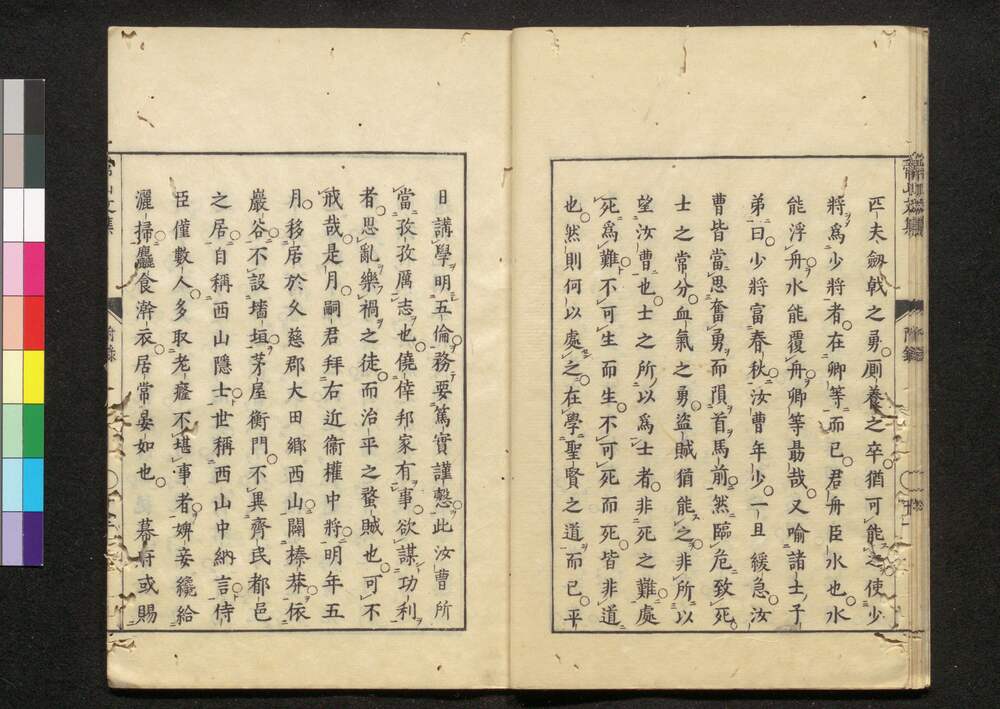 匹夫劔戟之勇厮養之卒猶可能之使少
將爲少將者在卿等而已君舟臣水也水
能浮舟水能覆舟卿等勗哉又喻諸士子
弟曰少將富春秋汝曹年少一旦緩急汝
曹皆當思奮勇而隕首馬前然臨危致死
士之常分血氣之勇盜賊猶能之非所以
望汝曹也士之所以爲士者非死之難處
死爲難不可生而生不可死而死皆非道
也然則何以處之在學聖賢之道而已平
日講學明五倫務要篤實謹慤此汝曹所
當孜孜厲志也僥倖邦家有事欲謀功利
者思亂樂禍之徒而治平之蝥賊也可不
戒哉是月嗣君拜右近衞權中將明年五
月移居於久慈郡大田鄉西山闢榛莽依
巖谷不設墻垣茅屋衡門不異齊民都邑
之居自稱西山隱士世稱西山中納言侍
臣僅數人多取老癃不堪事者婢妾纔給
灑掃麤食澣衣居常晏如也 幕府或賜